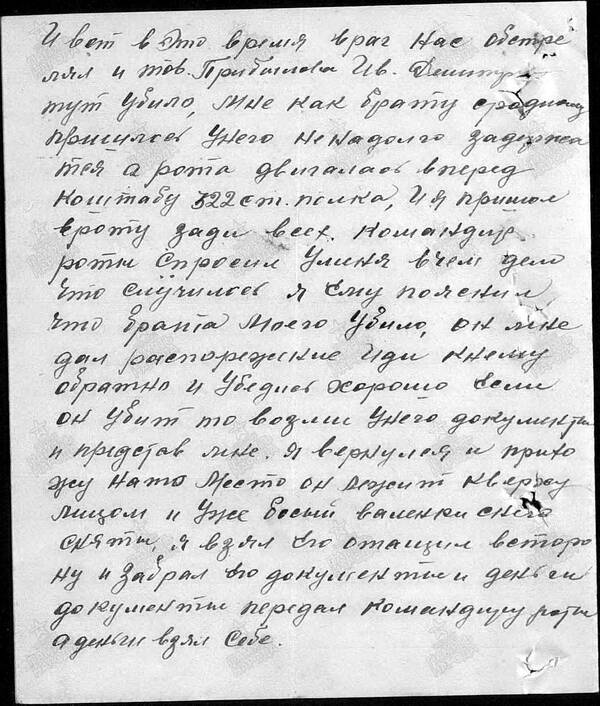 И вот в это время враг нас обстре
лял и тов. Прибылова Ив. Дмитр
тут убило, мне как брату сродному
пришлось унего ненадолго задержа
тся а рота двигалась вперед
коштабу 522 ст. полка, и я пришол
вроту зади всех. Командир
роты спросил уминя вчем дело
что случилось я ему пояснил
что брата моего убило, он мне
дал распорежение иди кнему
обратно и убедись хорошо если
он убит то возми унего документы
и представ мне. я вернулся и прихо
жу нато место он лежит кверху
лицом и уже босый валенки снего
сняты, я взял его отащил всторо
ну и забрал его документы и деньги
документы передал командиру роты
а деньги взял себе.